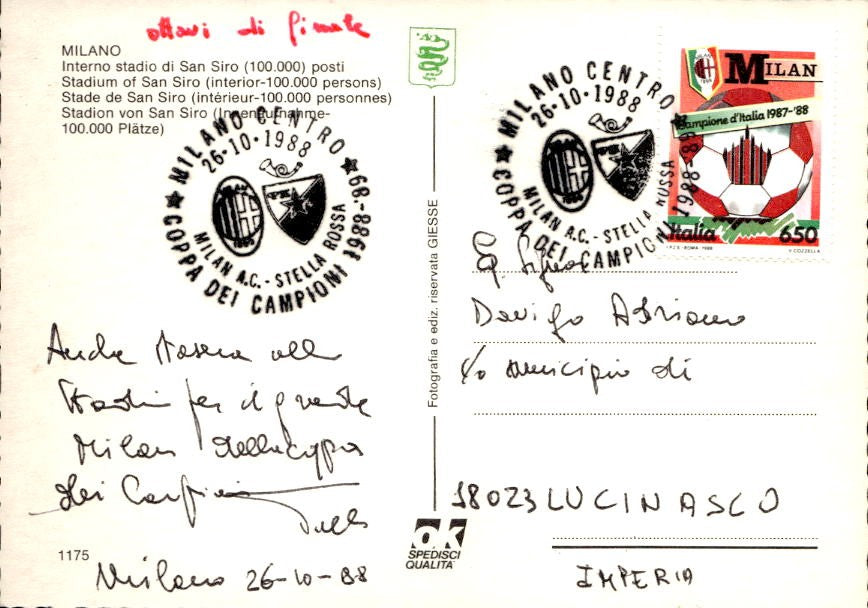 ottavi di finale
MILANO
Interno stadio di San Siro (100.000) posti
Stadium of San Siro (interior-100.000 persons)
Stade de San Siro (intérieur-100.000 personnes)
Stadion von San Siro (Innenaufnahme-
100.000 Plätze)
MILANO CENTRO
26-10-1988
MILAN A.C. - STELLA ROSSA
COPPA DEI CAMPIONI 1988-89
Anche stasera allo
stadio per il grande
Milan della coppa
dei Campioni
1175
Milano 26-10-88
Fotografia e ediz. riservata GIESSE
ok
SPEDISCI
QUALITA'
MILANO CENTRO
26-10-1988
MILAN A.C. - STELLA ROSSA
COPPA DEI CAMPIONI 1988-89
MILAN
Campione d'Italia 1987-'88
Italia 650
I.P.Z.S. - ROMA - 1988
V. COZZELLA
Eg. Signor
Adriano
c/o Municipio di
18023 LUCINASCO
IMPERIA